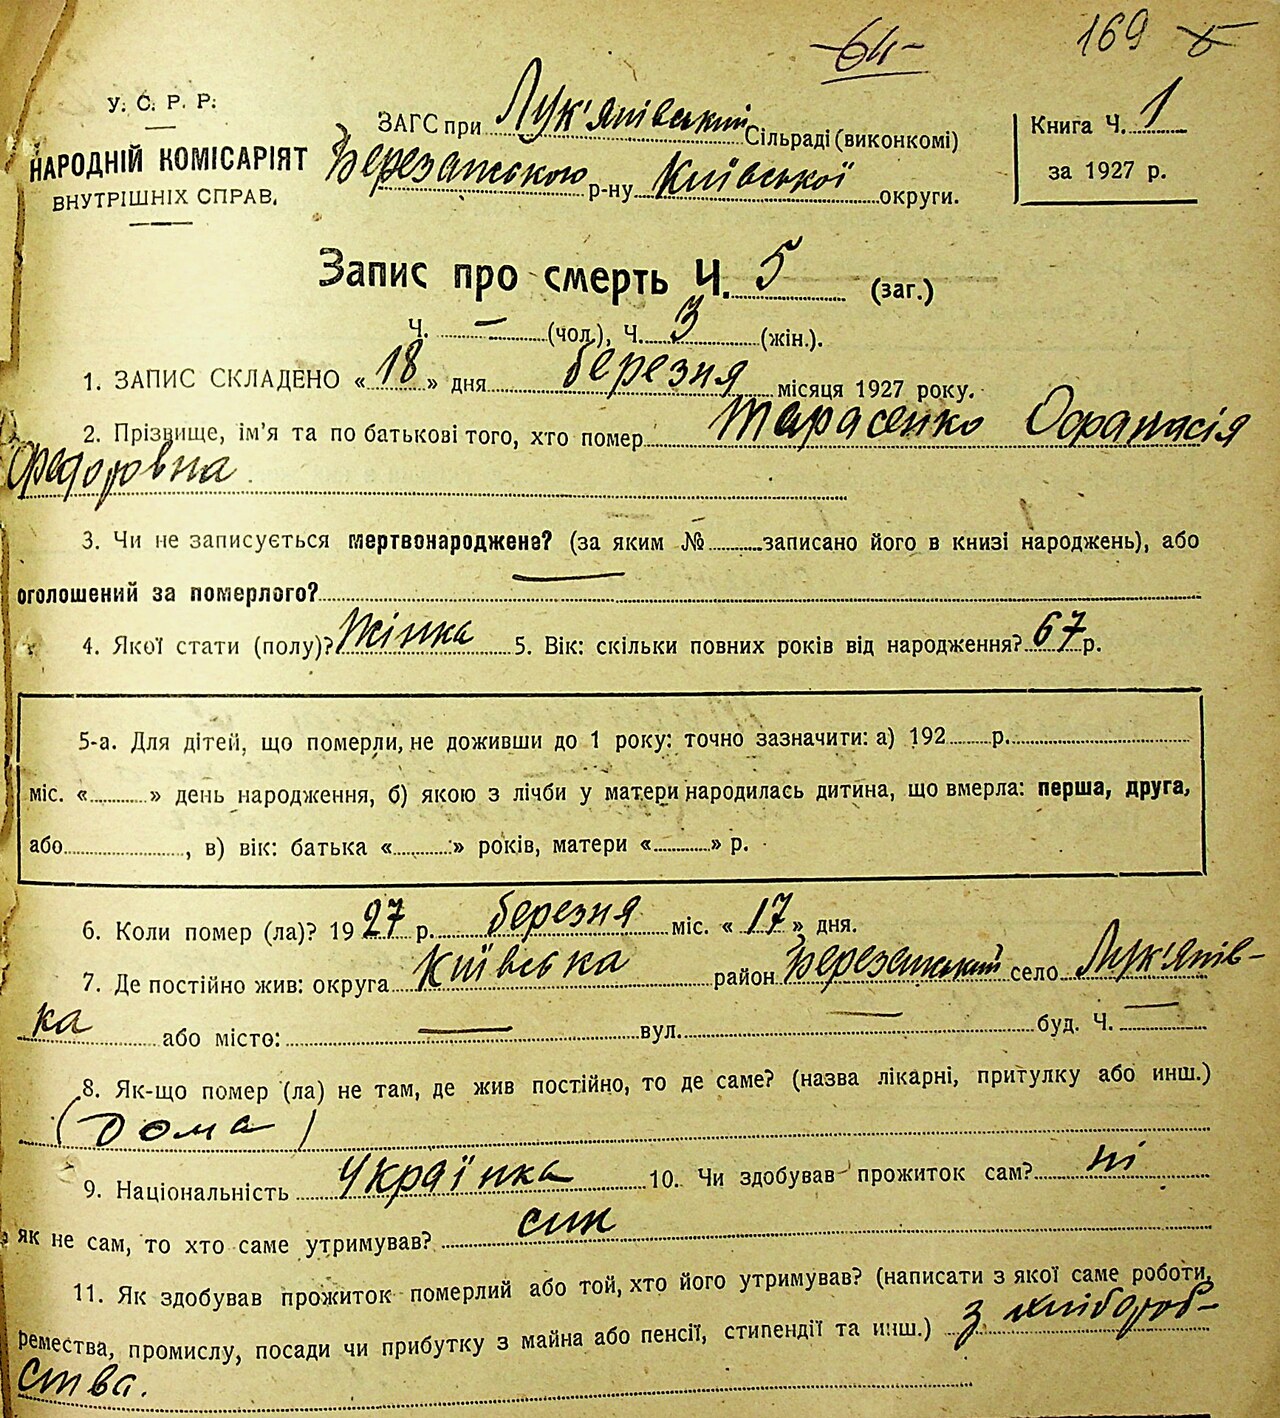 -64-
169
У. С. Р. Р.
НАРОДНІЙ КОМІСАРІЯТ
ВНУТРІШНІХ СПРАВ.
ЗАГС при Лук'янівський Сільраді (виконкомі)
Березанською р-ну Київської округи.
Книга Ч. 1
за 1927 р.
Запис про смерть Ч. 5 (заг.)
Ч. — (чол.), Ч. 3 (жін.).
1. ЗАПИС СКЛАДЕНО «18» дня березня місяця 1927 року.
2. Прізвище, ім'я та по батькові того, хто помер Тарасенко Офанасія
Федоровна.
3. Чи не записується мертвонароджене? (за яким № записано його в книзі народжень), або
оголошений за померлого? —
4. Якої стати (полу)? Жінка 5. Вік: скільки повних років від народження? 67 р.
5-а. Для дітей, що померли, не доживши до 1 року: точно зазначити: а) 192 р.
міс. « » день народження, б) якою з лічби у матери народилась дитина, що вмерла: перша, друга,
або , в) вік: батька « » років, матери « » р.
6. Коли помер (ла)? 1927 р. березня міс. «17» дня.
7. Де постійно жив: округа Київська район Березанський село Лук'янів-
ка або місто: — вул. — буд. Ч. —
8. Як-що помер (ла) не там, де жив постійно, то де саме? (назва лікарні, притулку або инш.)
(Дома)
9. Національність Українка 10. Чи здобував прожиток сам? ні
як не сам, то хто саме утримував? син
11. Як здобував прожиток померлий або той, хто його утримував? (написати з якої саме роботи,
ремества, промислу, посади чи прибутку з майна або пенсії, стипендії та инш.) з хлібороб-
ства.